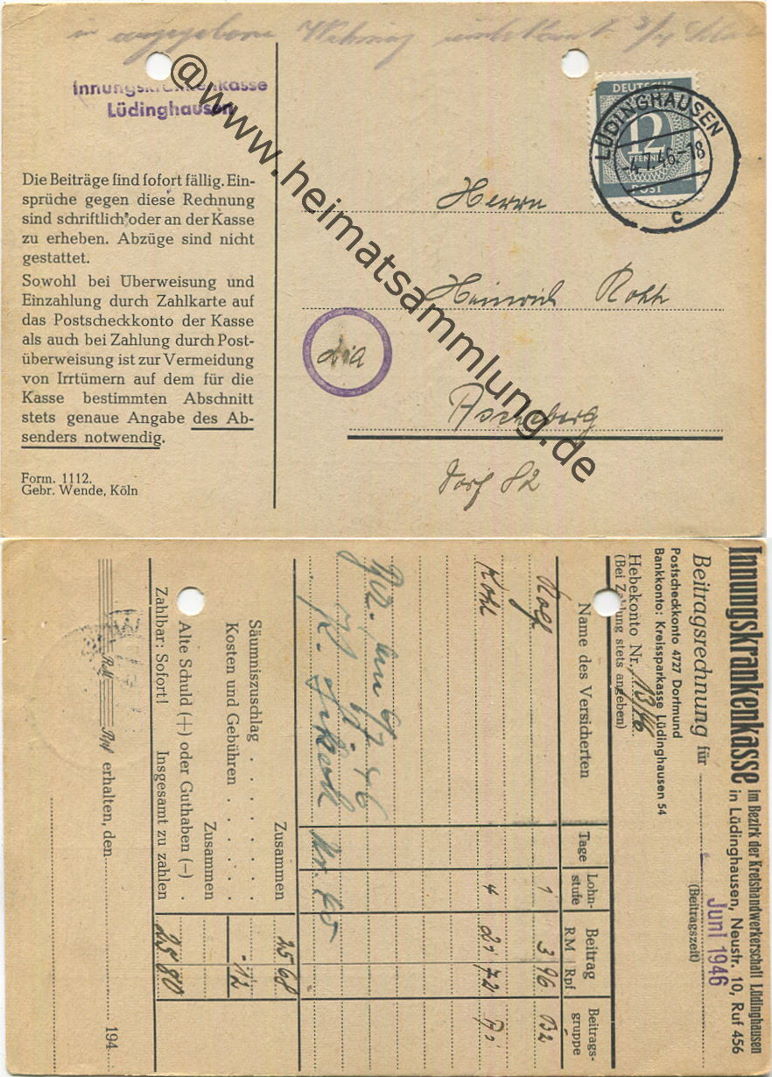 in angegebene
Innungskrankenkasse
Lüdinghausen
@www.heimatsammlung.de
DEUTSCHE
12
PFENNIG
POST
LÜDINGHAUSEN
-4.7.46.-18
c
Die Beiträge sind sofort fällig. Ein-
sprüche gegen diese Rechnung
sind schriftlich oder an der Kasse
zu erheben. Abzüge sind nicht
gestattet.
Sowohl bei Überweisung und
Einzahlung durch Zahlkarte auf
das Postscheckkonto der Kasse
als auch bei Zahlung durch Post-
überweisung ist zur Vermeidung
von Irrtümern auf dem für die
Kasse bestimmten Abschnitt
stets genaue Angabe des Ab-
senders notwendig.
Form. 1112.
Gebr. Wende, Köln
Herrn
Heinrich
Ascheberg
Dorf 82
Innungskrankenkasse im Bezirk der Kreishandwerkerschaft Lüdinghausen
in Lüdinghausen, Neustr. 10, Ruf 456
Beitragsrechnung für Juni 1946
(Beitragszeit)
Postscheckkonto 4727 Dortmund
Bankkonto: Kreissparkasse Lüdinghausen 54
Hebekonto Nr. 13/46
(Bei Zahlung stets angeben)
Name des Versicherten Tage Lohn-stufe Beitrag RM Rpf Beitrags-gruppe
1 3 96 B2
4 21 72
Zusammen 25 68
Säumniszuschlag
Kosten und Gebühren -12
Zusammen
Alte Schuld (+) oder Guthaben (−)
Zahlbar: Sofort! Insgesamt zu zahlen 25 80
RM Rpf erhalten, den 194